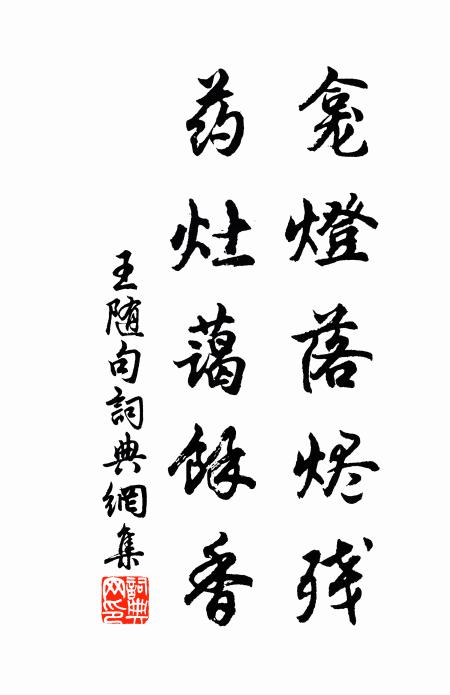 龛燈落烬残
药灶蔼餘香
王随句詞典網集
詞典网印